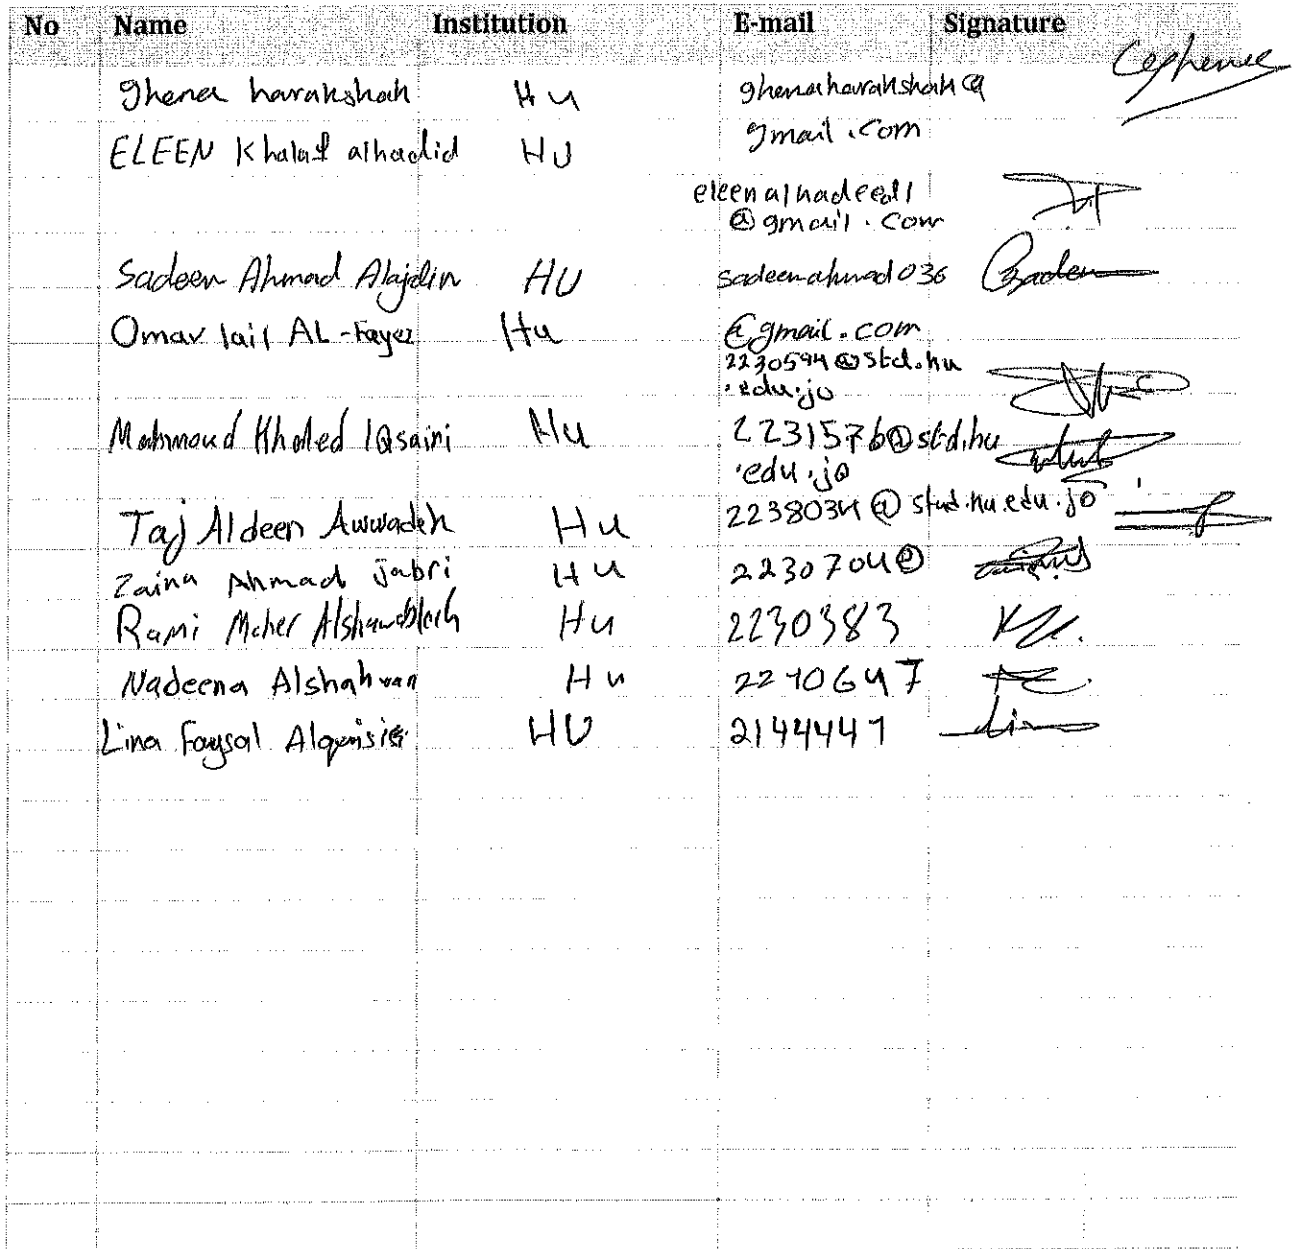 No Name Institution E-mail Signature
Ghena harakshah Hu ghenaharakshah@
gmail.com
ELEEN Khalaf alhadid HU
eleenalhadeed1
@gmail.com
Sadeen Ahmad Alajalin HU sadeenahmad036
@gmail.com
Omar lail AL-Fayez Hu
2230594@std.hu
.edu.jo
Mahmoud Khaled Hu 2231576@std.hu
.edu.jo
Taj Aldeen Awwadeh Hu 2238034@stud.hu.edu.jo
Zaina Ahmad jabri Hu 2230704@
Rami Maher Hu 2230383
Nadeena Alshahwan Hu
Lina Faysal HU 2144447